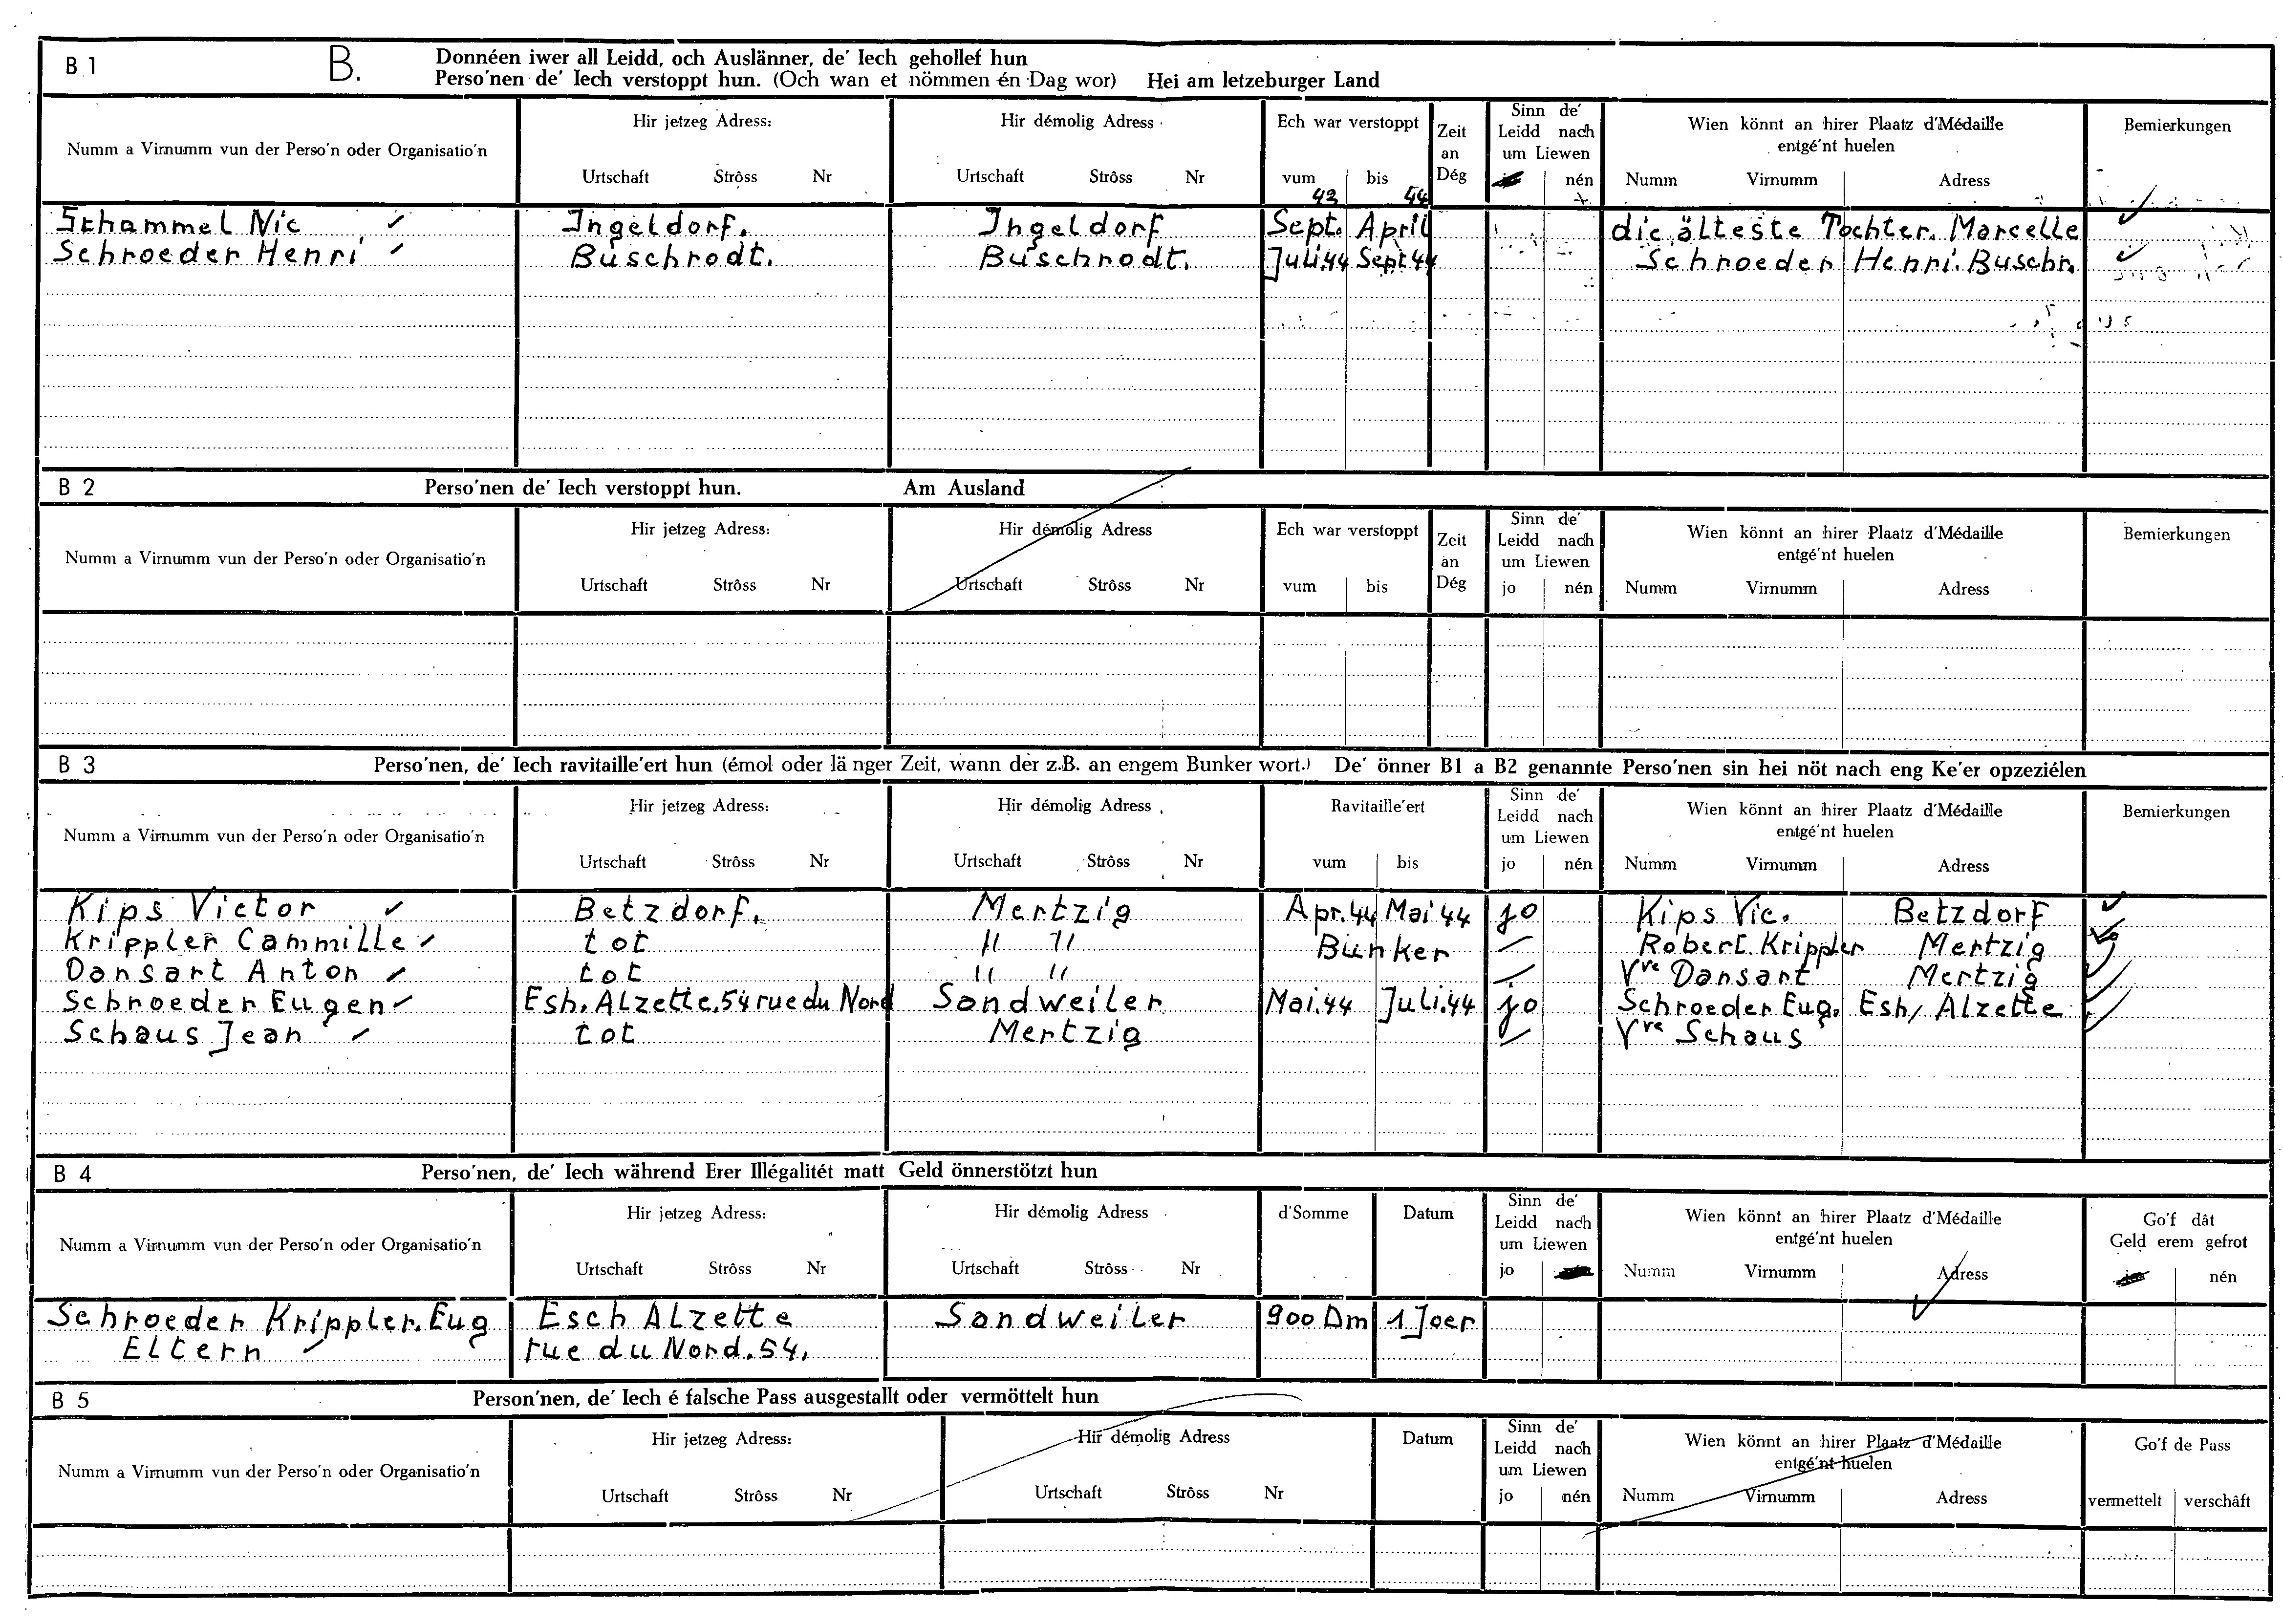 B 1 B. Donnéen iwer all Leidd, och Auslänner, de' Iech gehollef hun
Perso'nen de' Iech verstoppt hun. (Och wan et nömmen én Dag wor) Hei am letzeburger Land
Numm a Virnumm vun der Perso'n oder Organisatio'n
Hir jetzeg Adress:
Urtschaft Strôss Nr
Hir démolig Adress
Urtschaft Strôss Nr
Ech war verstoppt
vum bis
43 44
Zeit
an
Dég
Sinn de'
Leidd nach
um Liewen
nén
Wien könnt an hirer Plaatz d'Médaille
entgé'nt huelen
Numm Virnumm Adress
Bemierkungen
Schammel Nic ✓ Ingeldorf. Ingeldorf Sept. April die älteste Tochter. Marcelle ✓
Schroeder Henri ✓ Buschrodt. Buschrodt. Juli.44 Sept 44 Schroeder Henri. Buschr. ✓
B 2 Perso'nen de' Iech verstoppt hun. Am Ausland
Numm a Virnumm vun der Perso'n oder Organisatio'n
Hir jetzeg Adress:
Urtschaft Strôss Nr
Hir démolig Adress
Urtschaft Strôss Nr
Ech war verstoppt
vum bis
Zeit
an
Dég
Sinn de'
Leidd nach
um Liewen
jo nén
Wien könnt an hirer Plaatz d'Médaille
entgé'nt huelen
Numm Virnumm Adress
Bemierkungen
B 3 Perso'nen, de' Iech ravitaille'ert hun (émol oder länger Zeit, wann der z.B. an engem Bunker wort.) De' önner B1 a B2 genannte Perso'nen sin hei nöt nach eng Ke'er opzeziélen
Numm a Virnumm vun der Perso'n oder Organisatio'n
Hir jetzeg Adress:
Urtschaft Strôss Nr
Hir démolig Adress
Urtschaft Strôss Nr
Ravitaille'ert
vum bis
Sinn de'
Leidd nach
um Liewen
jo nén
Wien könnt an hirer Plaatz d'Médaille
entgé'nt huelen
Numm Virnumm Adress
Bemierkungen
Kips Victor ✓ Betzdorf. Mertzig Apr.44 Mai 44 jo Kips Vic. Betzdorf ✓
Krippler Cammille ✓ tot " " Bunker Robert Krippler Mertzig ✓
Dansart Anton ✓ tot " " Vre Dansart Mertzig ✓
Schroeder Eugen ✓ Esh. Alzette. 54 rue du Nord Sandweiler Mai.44 Juli.44 jo Schroeder Eug. Esh/ Alzette ✓
Schaus Jean ✓ tot Mertzig Vre Schaus ✓
B 4 Perso'nen, de' Iech während Erer Illégalitét matt Geld önnerstötzt hun
Numm a Virnumm vun der Perso'n oder Organisatio'n
Hir jetzeg Adress:
Urtschaft Strôss Nr
Hir démolig Adress
Urtschaft Strôss Nr
d'Somme
Datum
Sinn de'
Leidd nach
um Liewen
jo
Wien könnt an hirer Plaatz d'Médaille
entgé'nt huelen
Numm Virnumm Adress
Go'f dât
Geld erem gefrot
nén
Schroeder Krippler. Eug Esch Alzette Sandweiler 900 Dm 1 Joer ✓
Eltern ✓ rue du Nord. 54.
B 5 Person'nen, de' Iech é falsche Pass ausgestallt oder vermöttelt hun
Numm a Virnumm vun der Perso'n oder Organisatio'n
Hir jetzeg Adress:
Urtschaft Strôss Nr
Hir démolig Adress
Urtschaft Strôss Nr
Datum
Sinn de'
Leidd nach
um Liewen
jo nén
Wien könnt an hirer Plaatz d'Médaille
entgé'nt huelen
Numm Virnumm Adress
Go'f de Pass
vermettelt verschâft